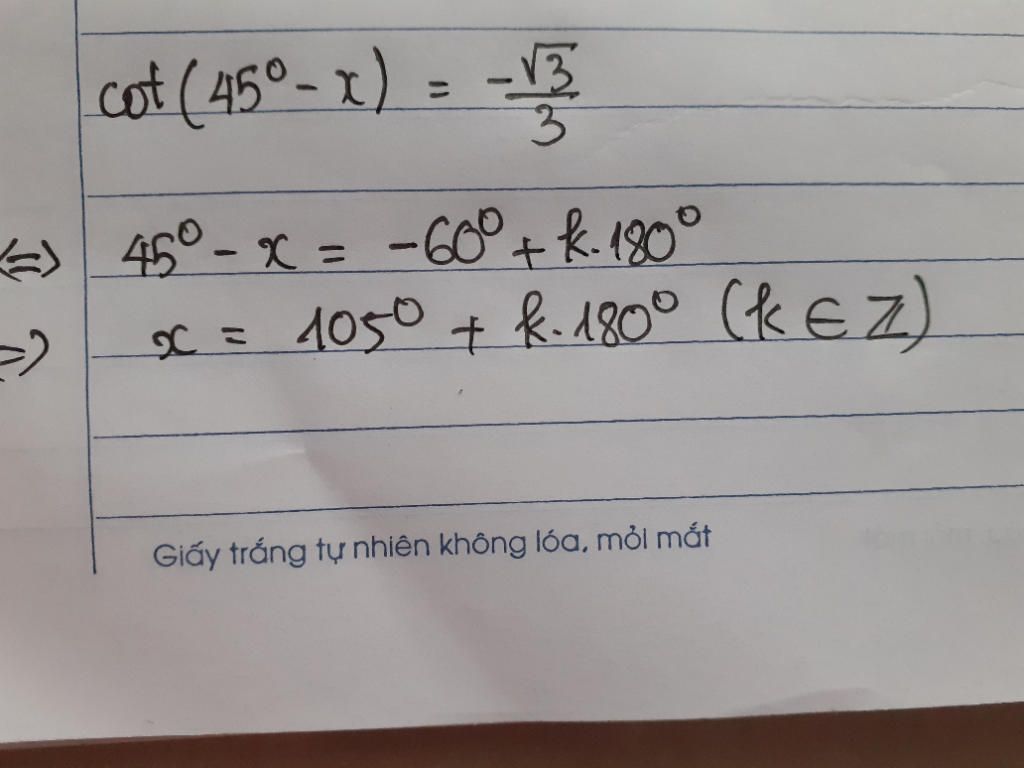 cot(45° - x) = -√3/3
<=> 45° - x = -60° + k.180°
=> x = 105° + k.180° (k ∈ Z)
Giấy trắng tự nhiên không lóa, mỏi mắt